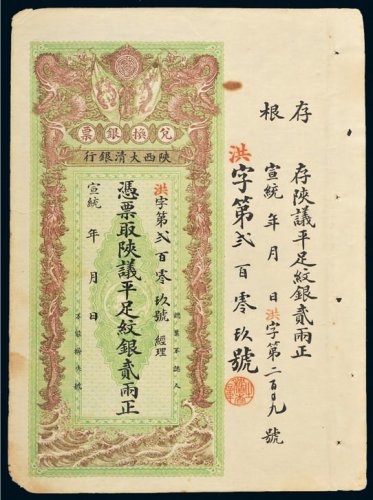 兌換銀票
陝西大清銀行
洪字第貳百零玖號 經理
憑票取陝議平足紋銀貳兩正
宣統 年 月 日
認票不認人
洪字第貳百零玖號
存根
存陝議平足紋銀貳兩正
宣統 年 月 日 洪字第二百零九號